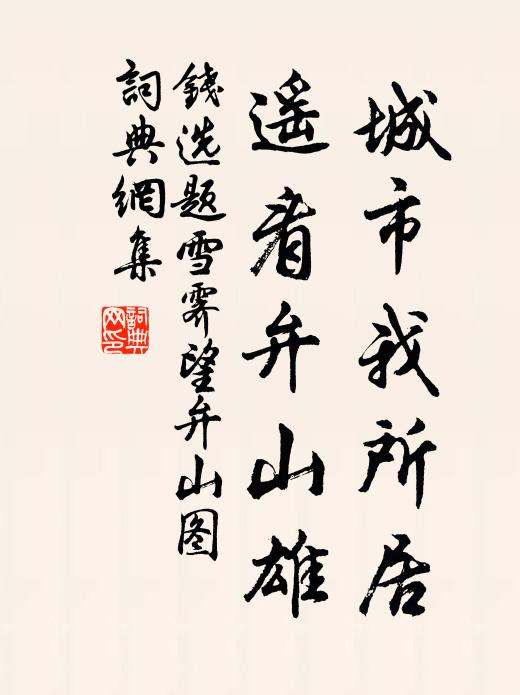 城市我所居
遥看弁山雄
錢选题雪霁望弁山图
詞典網集
詞典网印